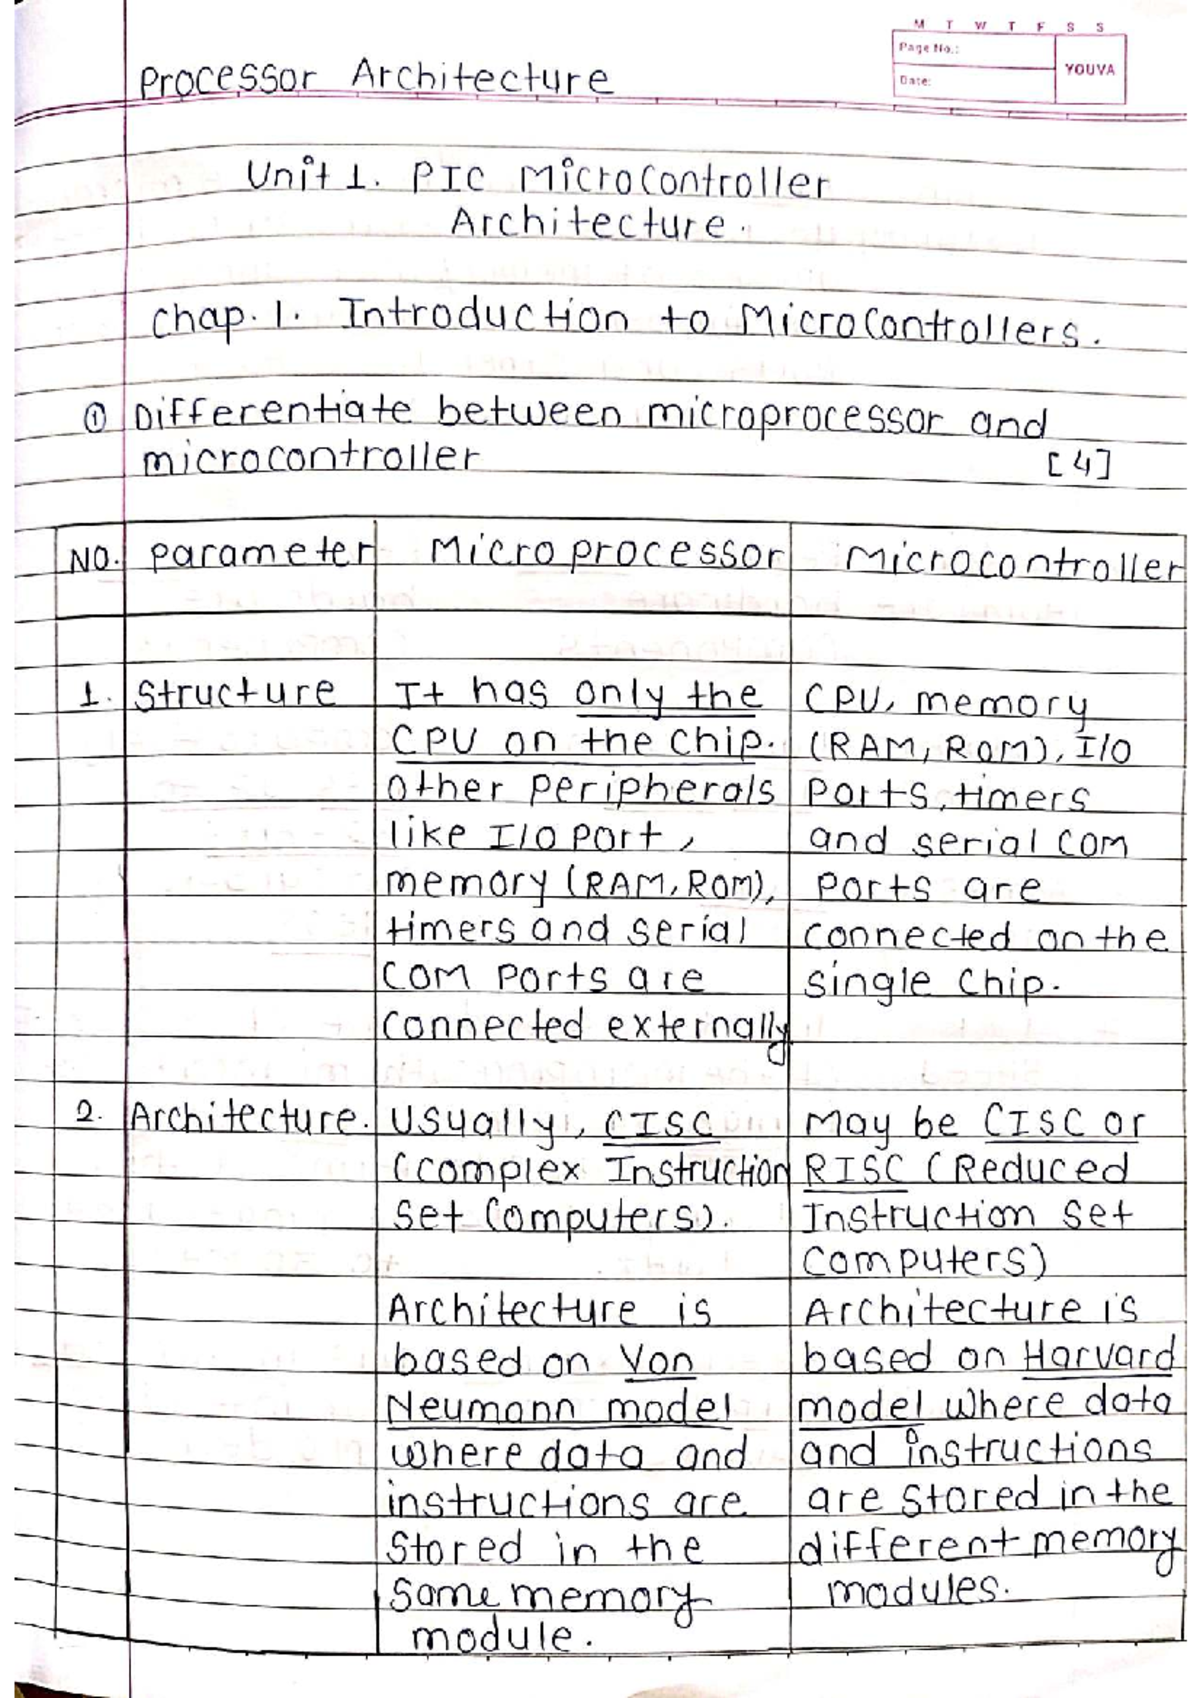 M T W T F S S
Page No.:
Date:
YOUVA
Processor Architecture
Unit 1. PIC Microcontroller
Architecture.
Chap. 1. Introduction to Microcontrollers.
① Differentiate between microprocessor and
microcontroller [4]
NO. Parameter Microprocessor Microcontroller
1. Structure It has only the CPU, memory
CPU on the chip. (RAM, ROM), I/O
Other peripherals Ports, timers
like I/O port, and serial com
memory (RAM, ROM), Ports are
timers and serial connected on the
com Ports are single chip.
connected externally
2. Architecture. Usually, CISC May be CISC or
(complex Instruction RISC (Reduced
Set Computers). Instruction set
Computers)
Architecture is Architecture is
based on Von based on Harvard
Neumann model model where data
where data and and instructions
instructions are are stored in the
Stored in the different memory
same memory modules.
module.